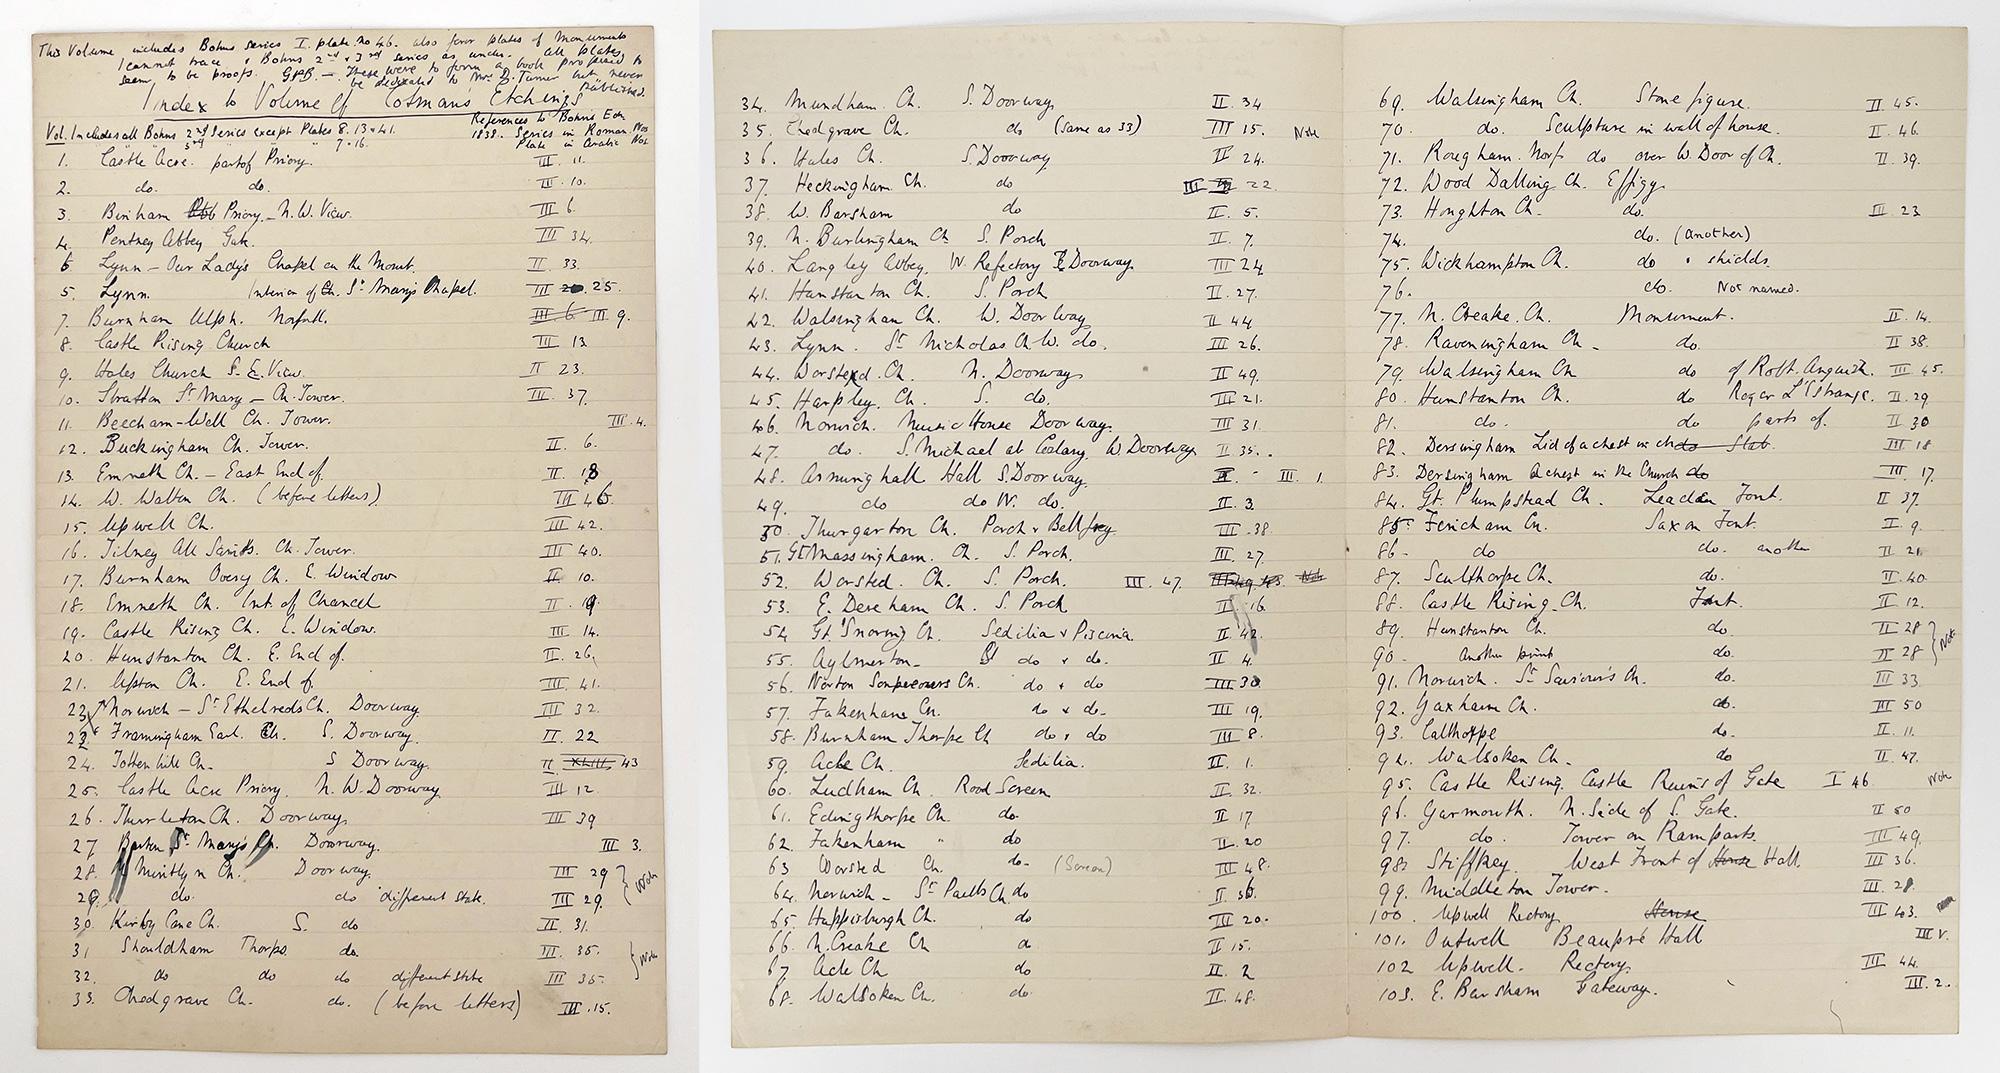 This Volume includes Bohns series I. plate. no 46. also four plates of Monuments
I cannot trace & Bohns 2nd & 3rd series as under. All plates,
seem to be proofs. G.P.B. – These were to form a book proposed to
be dedicated to Mrs D. Turner but never
published.
Index to Volume of Cotman's Etchings
References to Bohns Edn
Vol. Includes all Bohns 2nd Series except Plates 8. 13 & 41. 1838. Series in Roman Nos
" " " 3rd " " " 7. 16. Plate in Arabic Nos.
1. Castle Acre. part of Priory. III. 11.
2. do. do. III. 10.
3. Binham Priory – N.W. View. III 6.
4. Pentney Abbey Gate. III 34.
6. Lynn – Our Lady's Chapel on the Mount. II. 33.
5. Lynn. Interior of Ch. St Mary's Chapel. III 25.
7. Burnham Ulph. Norfolk. III 6 III. 9.
8. Castle Rising Church III 13
9. Hales Church S.E. View. II 23.
10. Stratton St Mary – Ch. Tower. III. 37.
11. Beecham-Well Ch. Tower. III. 4.
12. Buckingham Ch. Tower. II. 6.
13. Emneth Ch. – East End of. II. 18
14. W. Walton Ch. (before letters) III 46.
15. Upwell Ch. III 42.
16. Tilney All Saints. Ch. Tower. III 40.
17. Burnham Overy Ch. E. Window II 10.
18. Emneth Ch. Int. of Chancel II. 19.
19. Castle Rising Ch. E. Window. III. 14.
20. Hunstanton Ch. E. End of. II. 26.
21. Upton Ch. E. End of. III. 41.
23. Norwich – St Ethelreds Ch. Doorway. III 32.
22. Framingham Earl. Ch. S. Doorway. II. 22
24. Tottenhill Ch. S Doorway. II XLIII 43
25. Castle Acre Priory. N.W. Doorway III 12
26. Thurleton Ch. Doorway. III 39
27 Barton St Mary's Ch. Doorway. III 3.
28. Mintlyn Ch. Doorway. III 29 Note
29. do. do different state. III 29.
30. Kirby Cane Ch. S. do II. 31.
31 Shouldham Thorpe. do. III. 35. Note
32. do do do different state III 35.
33. Chedgrave Ch. do. (before letters) III. 15.
34. Mundham. Ch. S. Doorway II. 34
35. Chedgrave Ch. do (same as 33) III 15. Note
36. Hales Ch. S. Doorway II 24.
37. Heckingham Ch. do III 22.
38. W. Barsham do II. 5.
39. N. Burlingham Ch S. Porch II. 7.
40. Langley Abbey. W. Refectory Doorway. III 24
41. Hunstanton Ch. S. Porch II. 27.
42. Walsingham Ch. W. Doorway II 44
43. Lynn. St Nicholas Ch. W. do. III 26.
44. Worsted. Ch. N. Doorway II 49.
45. Harpley. Ch. S. do. III 21.
46. Norwich. Music House Doorway. III 31.
47. do. S. Michael at Coslany. W. Doorway II 35.
48. Arminghall Hall S. Doorway. III. 1.
49. do do W. do. II. 3.
50. Thurgarton Ch. Porch & Bellfrey III. 38.
51. Gt Massingham. Ch. S. Porch. III. 27.
52. Worsted. Ch. S. Porch. III. 47. Note
53. E. Dereham Ch. S. Porch II 16.
54 Gt Snoring Ch. Sedilia & Piscina. II. 42.
55. Aylmerton – do & do. II 4.
56. Norton Ch. do & do III 30
57. Fakenham Ch. do & do. III 19.
58. Burnham Thorpe Ch do & do III 8.
59. Acle Ch. Sedilia. II. 1.
60. Ludham Ch. Rood Screen II. 32.
61. Edingthorpe Ch. do. II 17
62. Fakenham " do II. 20
63 Worsted Ch. do – (Screen) III 48.
64. Norwich – St Pauls Ch. do II 36.
65. Happisburgh Ch. do III 20.
66. N. Creake Ch do II 15.
67. Acle Ch do II. 2
68. Walsoken Ch. do. II. 48.
69. Walsingham Ch. Stone figure. II. 45.
70. do. Sculpture in wall of house. II. 46.
71. Rougham. Norf do over W. Door of Ch. II. 39.
72. Wood Dalling Ch. Effigy
73. Houghton Ch. do. II. 23
74. do. (another)
75. Wickhampton Ch. do & shields.
76. do. Not named.
77. N. Creake. Ch. Monument. II. 14.
78. Raveningham Ch – do. II 38.
79. Walsingham Ch do of Robt. Anguish. III 45.
80. Hunstanton Ch. do Roger L'Strange. II. 29
81. do. do parts of. II 30
82. Dersingham Lid of a chest in ch do Slab. III 18
83. Dersingham a chest in the Church do III. 17.
84. Gt. Plumpstead Ch. Leaden Font. II 37.
85. Fincham Ch. Saxon Font. I. 9.
86 – do do. another II 21.
87. Sculthorpe Ch. do. II 40.
88. Castle Rising. Ch. Font. II 12.
89. Hunstanton Ch. do. II 28 Note
90. another print do. II 28
91. Norwich. St Saviour's Ch. do. III 33
92. Yaxham Ch. do. III 50
93. Calthorpe do – II. 11.
94. Walsoken Ch. do II. 47.
95. Castle Rising. Castle Ruins of Gate I 46. Note
96. Yarmouth. N. Side of S. Gate. II 50
97. do. Tower on Ramparts. III 49.
98. Stiffkey. West Front of House Hall. III 36.
99. Middleton Tower. III. 28.
100. Upwell Rectory House III 43.
101. Outwell Beaupré Hall III V.
102 Upwell. Rectory. III 44.
103. E. Barsham Gateway. III. 2.